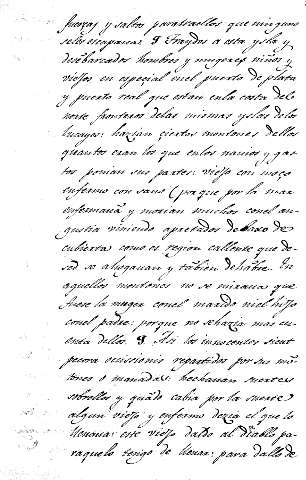 fuerças y saltos paratraellos que ninguno
seles escapaua: ¶ Traydos a esta ysla y
desẽbarcados hombres y mugeres niños y
viejos en especial enel puerto de plata
y puerto real que estan enla costa del
norte fronteros delas mismas yslas delos
lucayos: hazian ciertos montones dellos
quantos eran los que enlos nauios y gas-
tos ponian sus partes: viejo con moço
enfermo con sano (porque por la mar
enfermauã y morian muchos conel an-
gustia viniendo apretados debaxo de
cubierta como es region caliente que de
sed se ahogauan y tãbien dehãbre. En
aquellos montones no se miraua que
fuese la muger conel marido niel hijo
conel padre: porque no sehazia mas cu-
enta dellos. ¶ Asi los innocentes sicut
pecora occisionis repartidos por sus mõ-
tones o manadas: hechauan suertes
sobrellos y quãdo cabia por la suerte
algun viejo y enfermo dezia el que lo
lleuaua: este viejo daldo al diablo pa-
raquelo tengo de lleuar: para dalle de